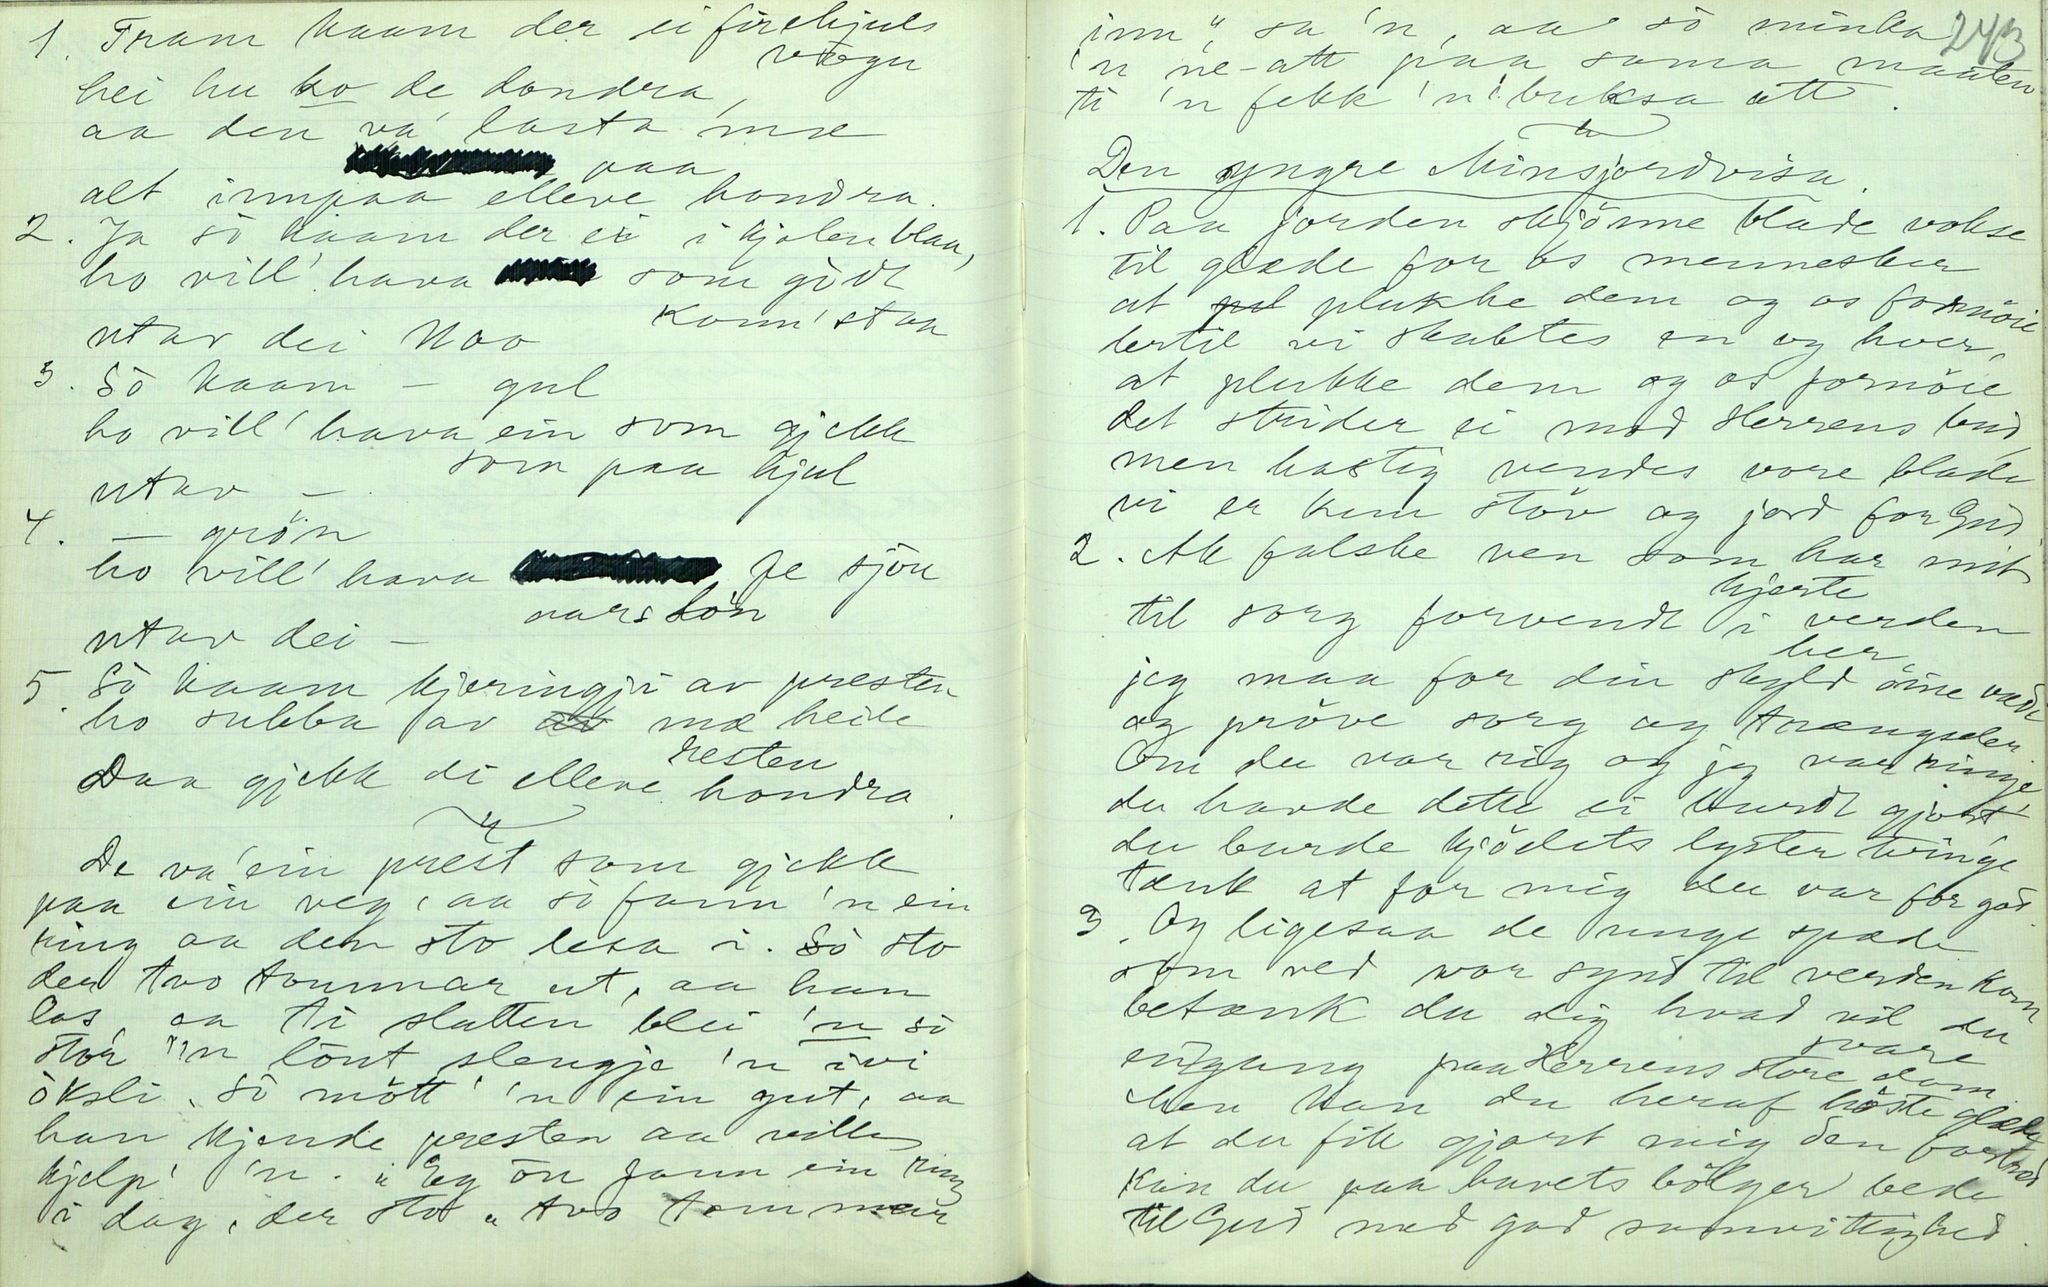 1. Fram kaam der ei firehjuls
vogn
hei hu ko de dondra,
aa den va' lasta mæ
paa
alt innpaa elleve hondra.
2. Ja så kaam der ei i kjolen blaa,
ho vill' hava som gödt
konn' staa
utav dei Noo
3. Så kaam – gul
ho vill' hava ein som gjekk
som paa hjul
utav –
4. – grön
ho vill' hava Je sjön
aarslön
utav dei –
5. Så kaam kjeringji av presten
ho subba av mæ heile
resten
Daa gjekk di elleve hondra.
De va' ein prest som gjekk
paa ein veg, aa så fann 'n ein
ring aa den sto lesa i. Så sto
der tvo tommar ut, aa han
las, aa ti slutten blei 'n så
stor 'n lönt slengje 'n ivi
öksli. Så mött' 'n ein gut, aa
han kjende presten aa ville
kjelp' 'n. "Eg ön fann ein ring
i dag, der sto "tvo tommar
243
inn", sa 'n, aa så minka
'n ne-att paa sama maaten
ti 'n fekk 'n i buksa att.
Den yngre Minsjordvisa.
1. Paa jorden skjönne blade vokse
til glæde for os mennesker
at plukke dem og os fornöie
dertil vi skabtes en og hver,
at plukke dem og os fornöie
det strider ei mod Herrens bud,
men hastig vendes vore blade
vi er kun stöv og jord for Gud.
2. Ak falske ven som har mit
hjerte
til sorg forvendt i verden
her,
jeg maa for din skyld öine væde
og pröve sorg og trængsler
Om du var rig og jeg var ringe,
du havde dette ei burdt gjort,
du burde kjödets lyster tvinge
tænk at for mig du var for god.
3. Og ligesaa de unge spæde
som ved vor synd til verden kom
betænk du dig hvad vil du
svare
engang paa Herrens store dom
Men kan du heraf höste glæde
at du fik gjort mig den fortræd
Kan du paa havets bölger bede
til Gud med god samvittighed.